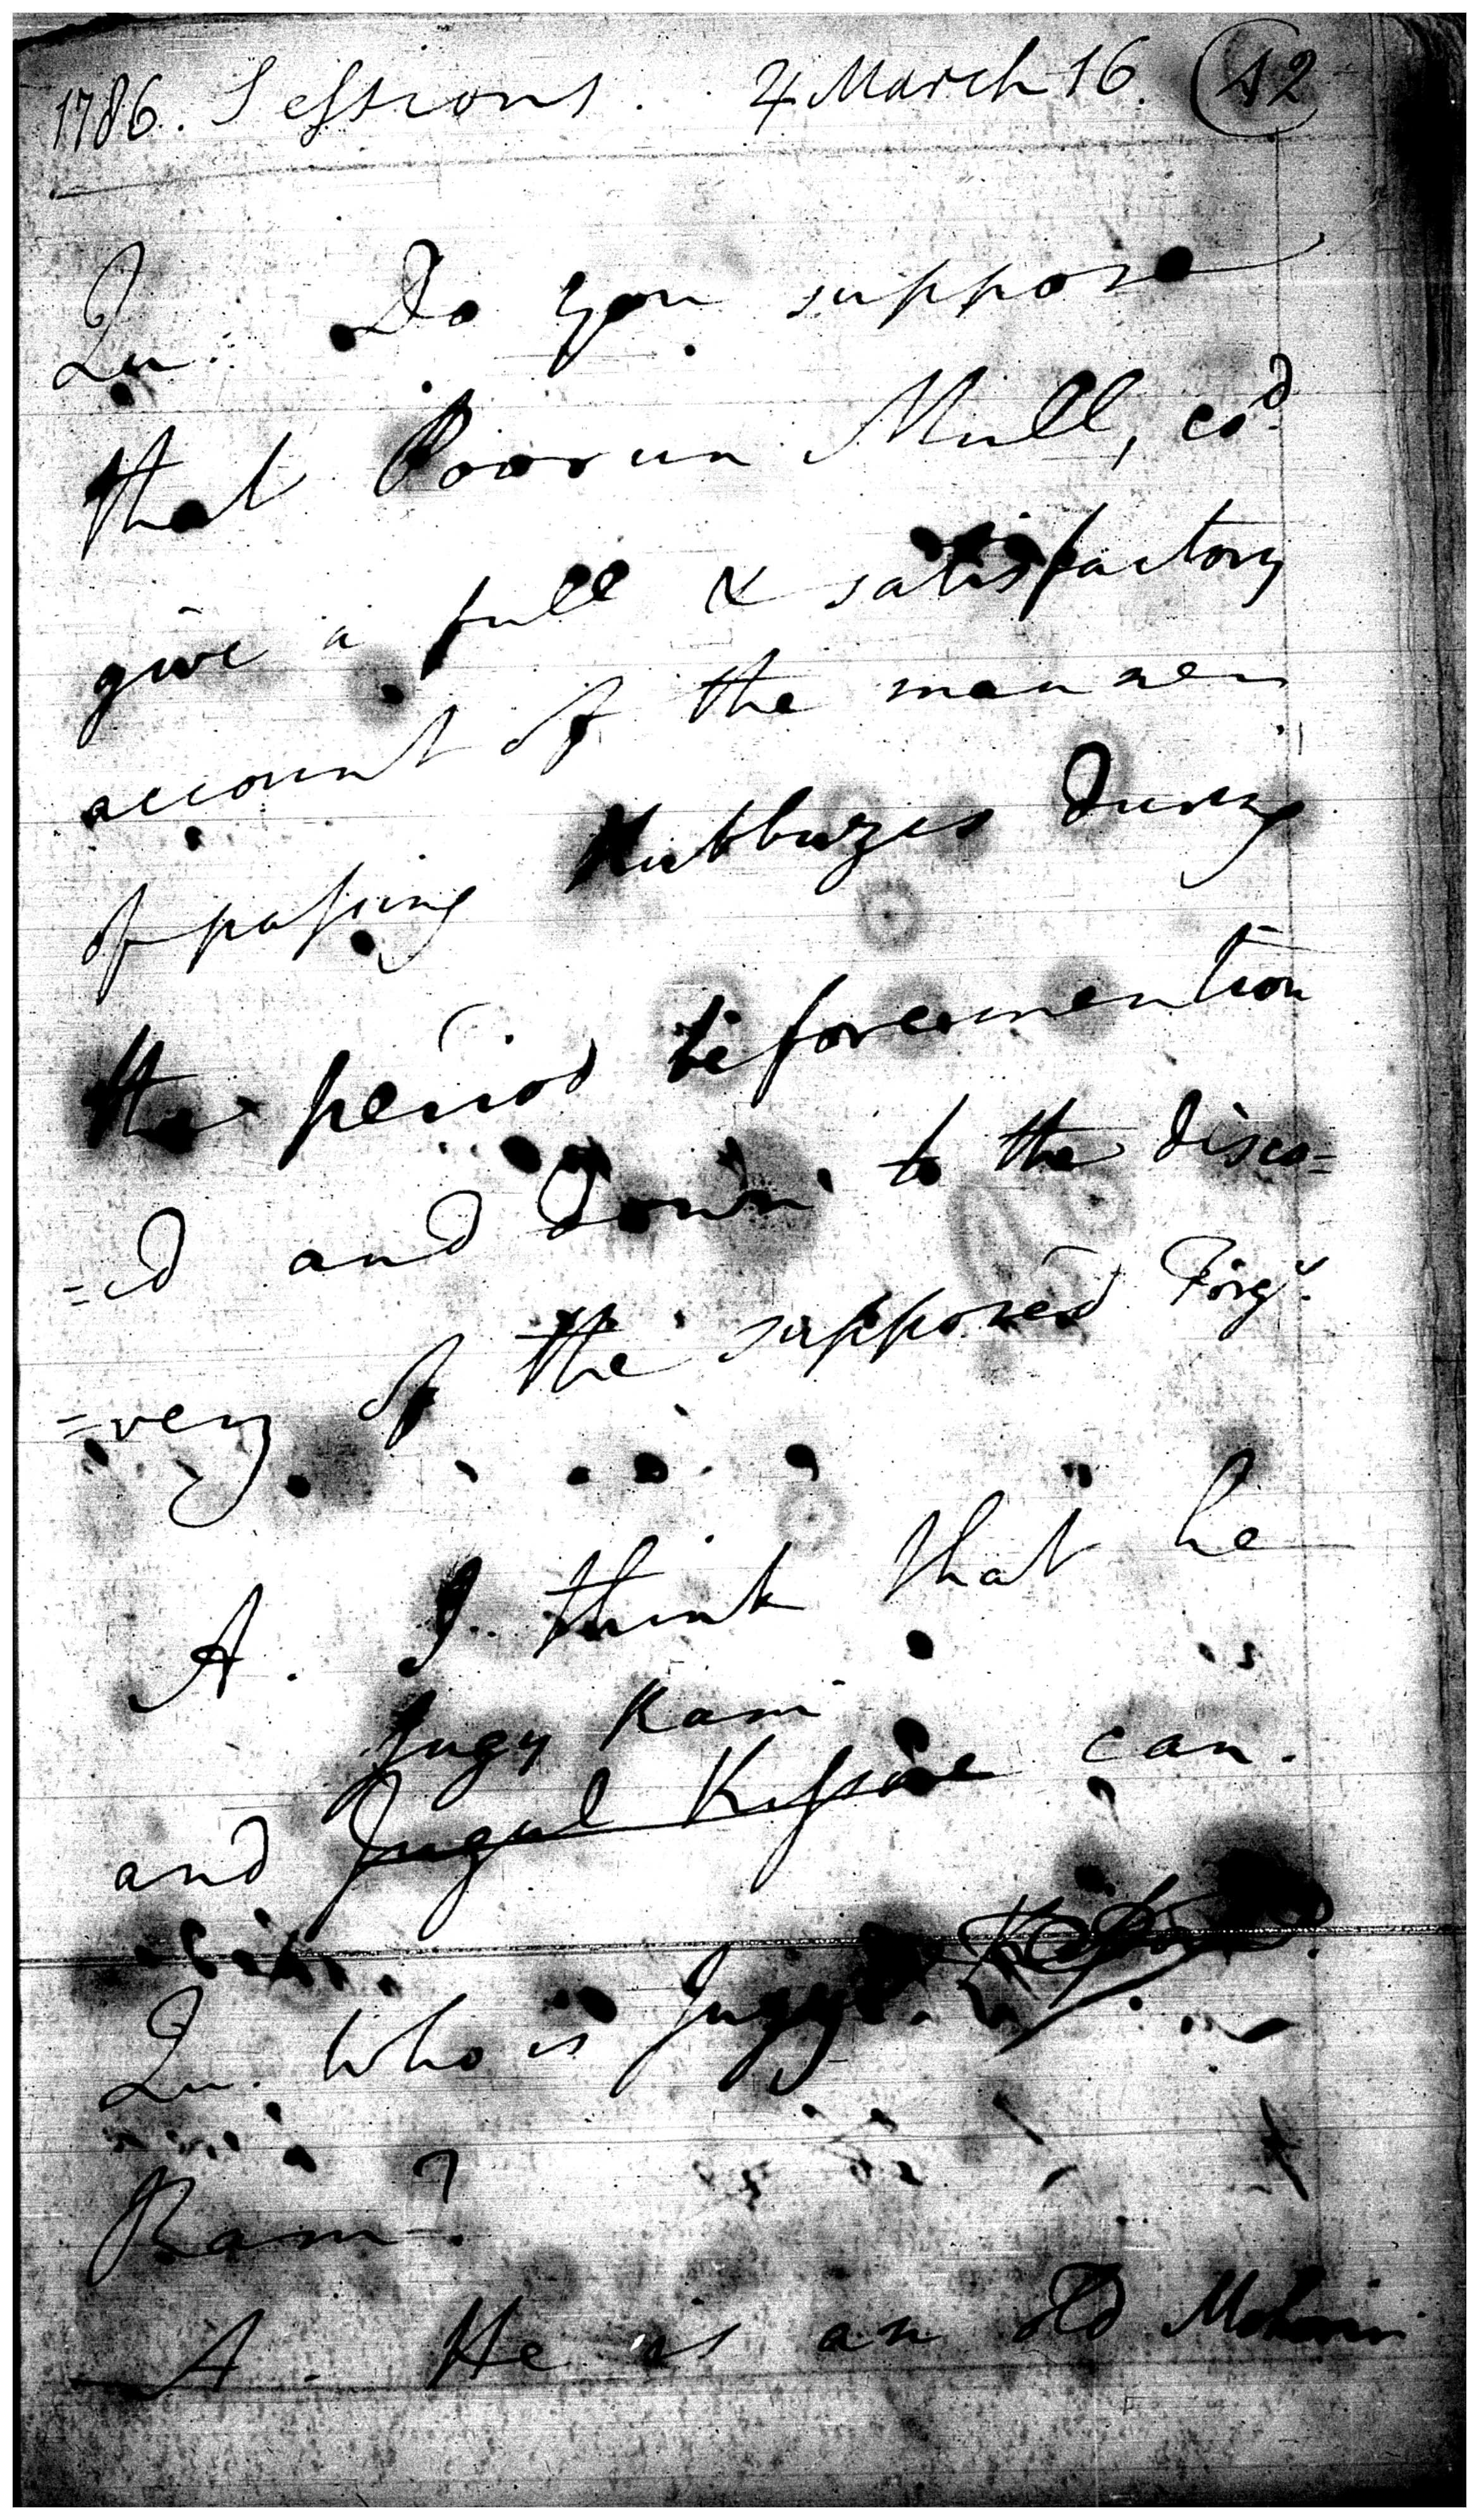 1786. Sessions. 4 March 16. 42
Qu. Do you suppose
that Poorun Mull, cod
give a full & satisfactory
account of the manner
of passing during
the period beforemention
=ed and down to the disco=
=very of the supposed Forgy.
A. I think that he
Jugy Ram
and Jugul Kissore can.
Qu. Who is Juggy
Ram?
A. He is an old